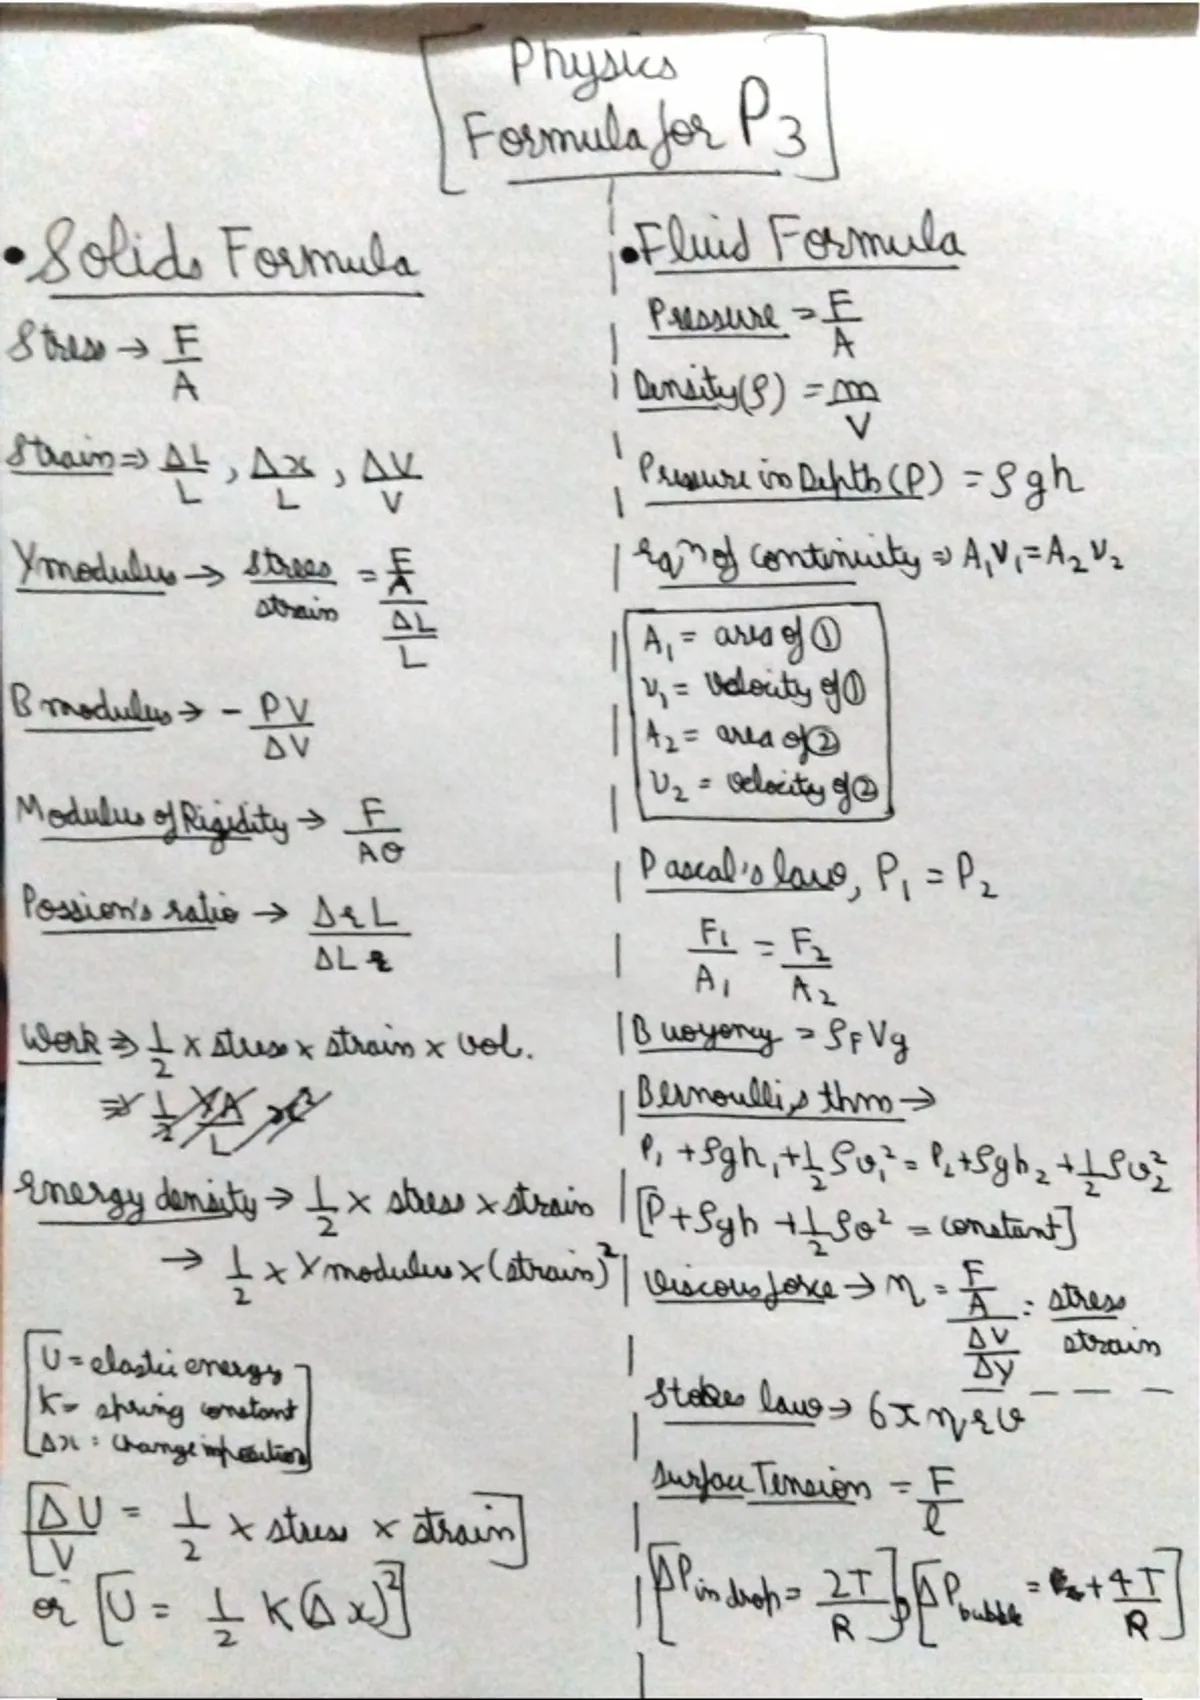 Physics
Formula for P3
• Solids Formula
Stress → F/A
Strain ⇒ ΔL/L, Δx/L, ΔV/V
Y modulus → stress/strain = (F/A)/(ΔL/L)
B modulus → - PV/ΔV
Modulus of Rigidity → F/Aθ
Possion's ratio → ΔrL/ΔLr
Work ⇒ 1/2 x stress x strain x vol.
⇒ 1/2 YA/L x²
Energy density → 1/2 x stress x strain
→ 1/2 x Y modulus x (strain)²
[U = elastic energy
K = spring constant
Δx = change in position]
[ΔU/V = 1/2 x stress x strain]
or [U = 1/2 K(Δx)²]
• Fluid Formula
Pressure = F/A
Density (ρ) = m/V
Pressure in Depth (P) = ρgh
Eqⁿ of continuity ⇒ A₁V₁ = A₂V₂
A₁ = area of ①
V₁ = velocity of ①
A₂ = area of ②
V₂ = velocity of ②
Pascal's law, P₁ = P₂
F₁/A₁ = F₂/A₂
Buoyency = ρFVg
Bernoulli's thm →
P₁ + ρgh₁ + 1/2 ρv₁² = P₂ + ρgh₂ + 1/2 ρv₂²
[P + ρgh + 1/2 ρv² = constant]
Viscous force → η = (F/A)/(ΔV/Δy) = stress/strain
Stokes law → 6πηrv
Surface Tension = F/l
[ΔP in drop = 2T/R], [ΔP bubble = + 4T/R]